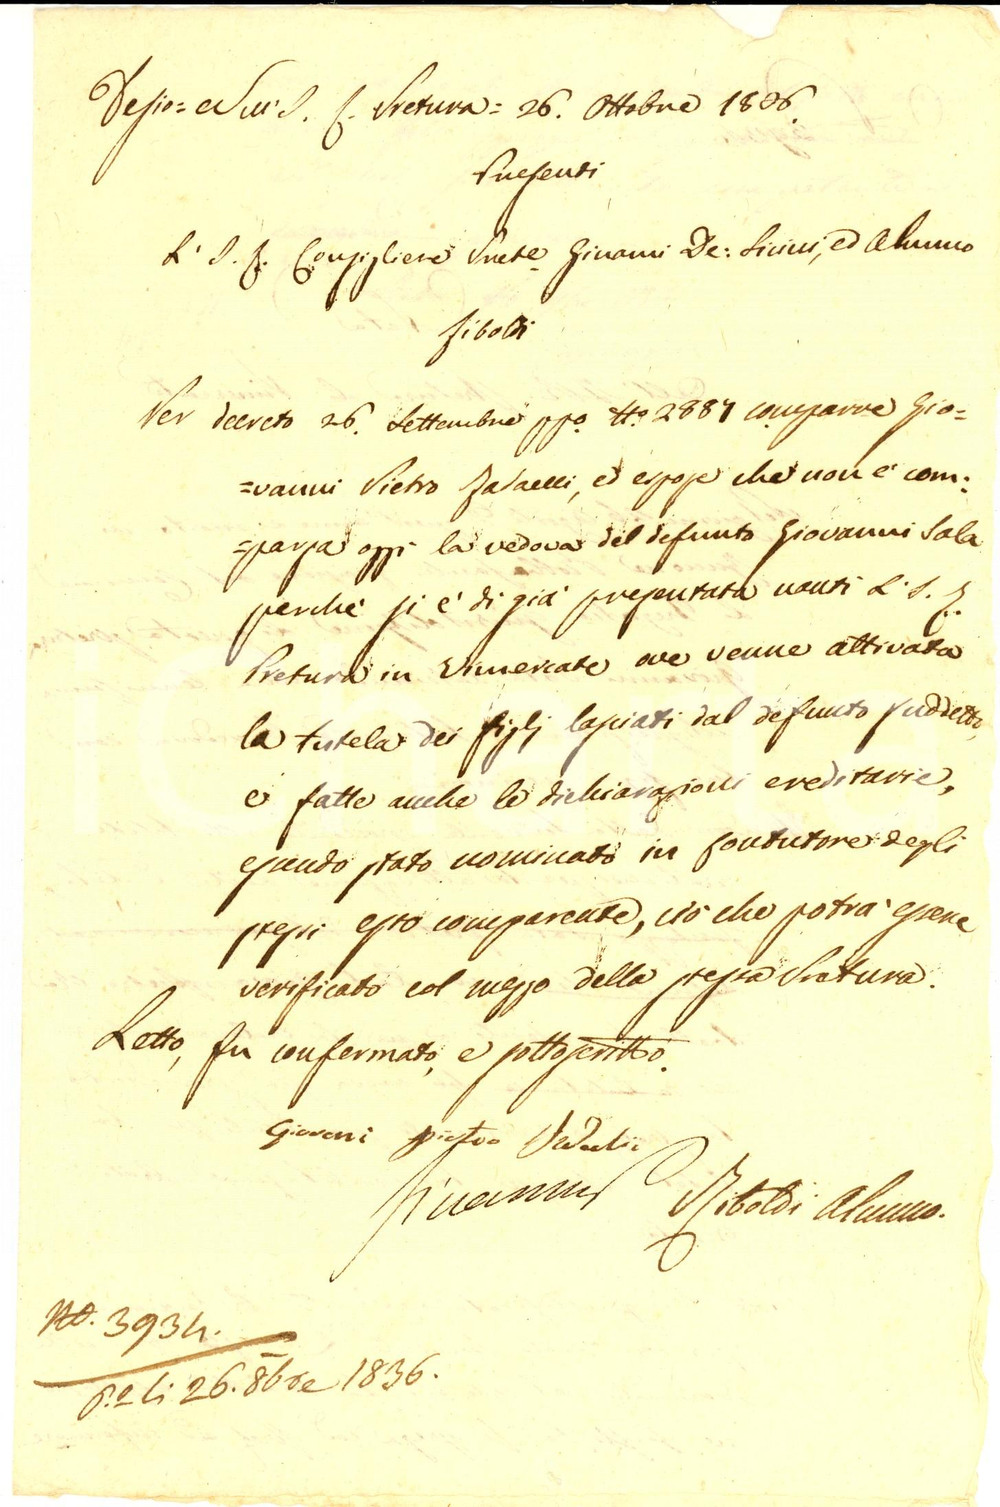 Desio = Nell' I. R. Pretura = 26. Ottobre 1836.
Presenti
L' I. R. Consigliere Pret.e Givanni De: Licini, ed Alunno
Riboldi
Per decreto 26. Settembre ppo. No. 2887 comparve Gio=
=vanni Pietro ed espose che non è com:
=parsa oggi la vedova del defunto Giovanni Sala
perchè si è di già presentata nanti L' I. R.
Pretura in Vimercate ove venne attivata
la tutela dei figlj lasciati dal defunto suddetto,
e fatte anche le dichiarazioni ereditarie,
essendo stato nominato in contutore degli
stessi esso comparente, ciò che potrà essere
verificato col mezzo della stessa Pretura.
Letto, fu confermato, e sottoscritto.
Giovani pietro
Riboldi Alunno.
No. 3934.
P.a li 26. 8bre 1836.